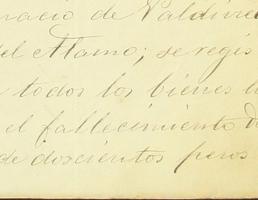 nacio de Valdivie
del Alamo; se regis
todos los bienes
el fallecimiento d
de doscientos pesos